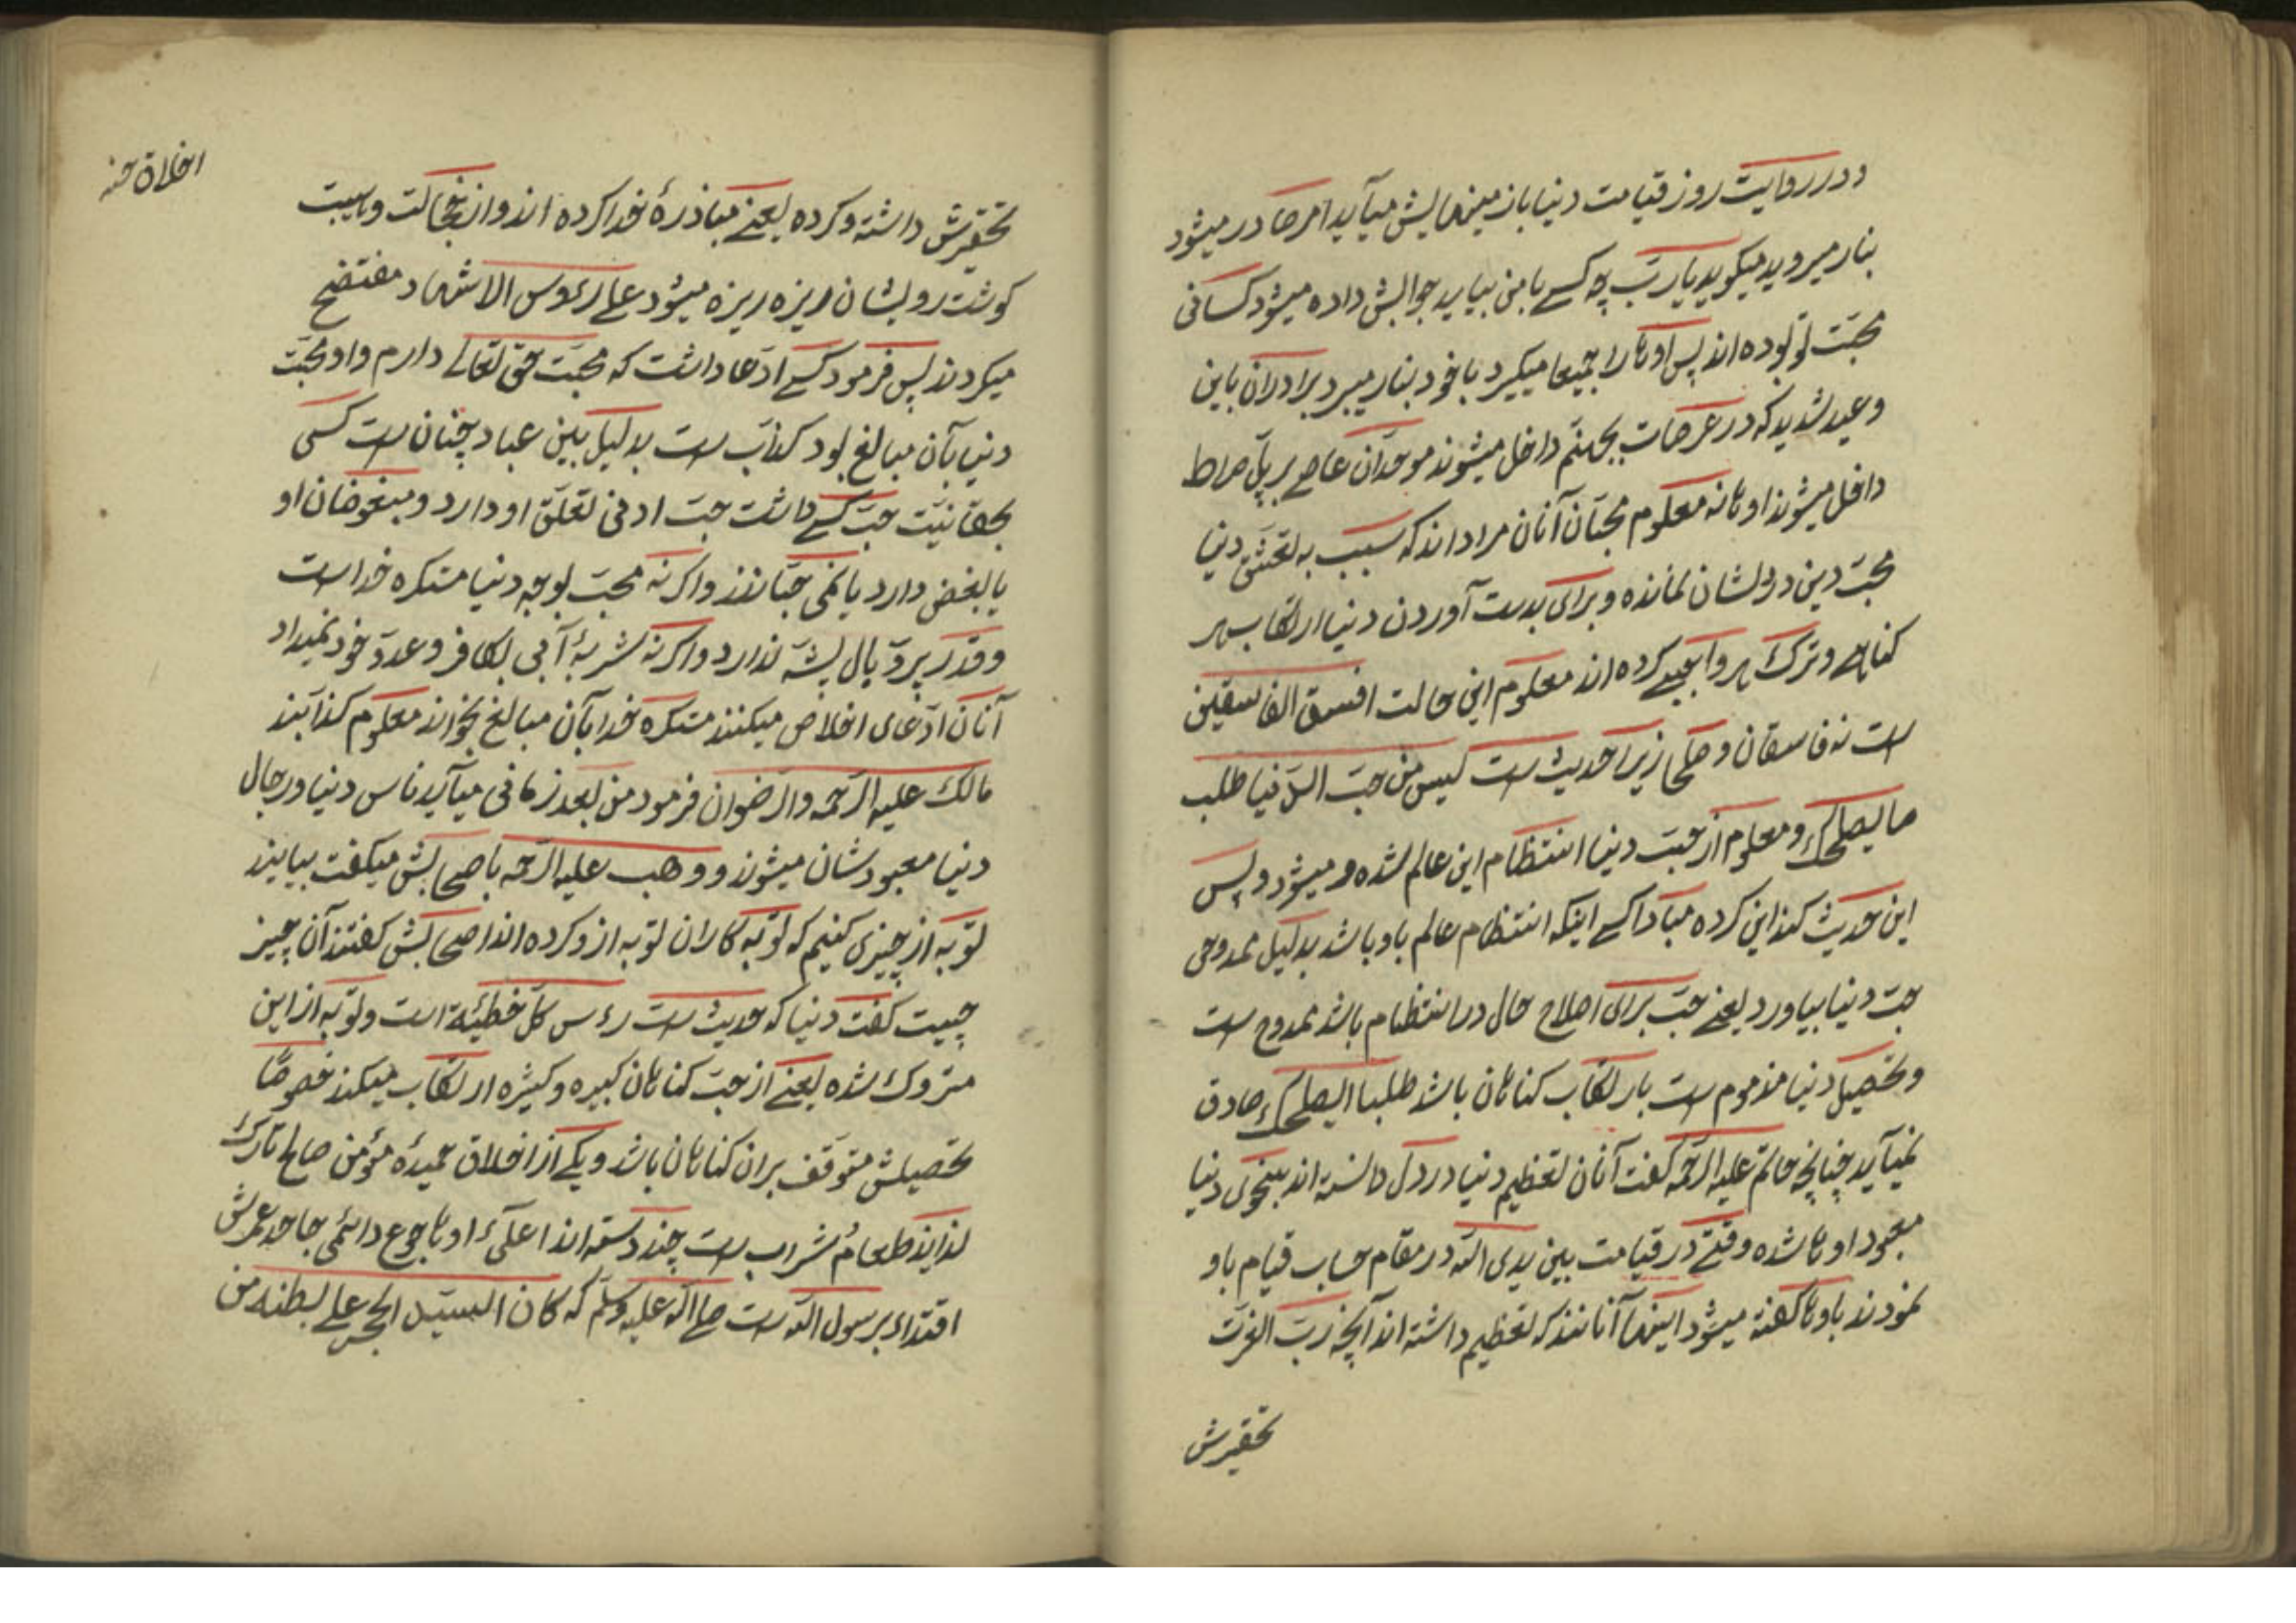 ودر روایت روز قیامت دنیا باز مینمایش میآید امر صادر میشود
بنار میروید میگوید یارب چه کسے با من بیاید جوابش داده میشود کسانی
محبت تو بوده اند پس اوها را جمیعا میگیرد با خود بنار میبرد برادران باین
وعید شدید که در عرصات بجهنم داخل میشوند موحدان عاصے بر پل صراط
داخل میشوند اوها نه معلوم محبان آنان مراد اند که سبب به تعشق دنیا
محبت دین در دلشان نمانده و برای بدست آوردن دنیا ارتکاب هر
کناهے و ترک هر واجبے کرده اند معلوم این حالت افسق الفاسقین
ست نه فاسقان و صلحا زیرا حدیث ست لیس من حب الدنیا طلب
ما یصلحک و معلوم از حب دنیا انتظام این عالم شده و میشود و پس
این حدیث کند این کرده مبادا کسے اینکه انتظام عالم باو باشد بدلیل ممدوحی
حب دنیا بیاورد یعنے حب برای اصلاح حال در انتظام باشد ممدوح ست
و تحصیل دنیا مذموم ست بارتکاب کناهان باشد طلب ما یصلحک صادق
نمیآید چنانچه حاتم علیه الرحمه کفت آنان تعظیم دنیا در دل دانسته اند بنحوی دنیا
معبود اوها شده وقتے در قیامت بین یدی الله در مقام حساب قیام باو
نمودند باوها کفته میشود اینها آنانند که تعظیم داشته اند آنچه رب العزت
تحقیرش
اخلاق حسنه
تحقیرش داشته و کرده یعنے مبادرهٔ خدا کرده اند و از خجالت و هیبت
کوشت رویشان ریزه ریزه میشود علے رءوس الاشهاد مفتضح
میکردند پس فرمود کسے ادعا داشت که محبت حق تعالے دارم و او محبت
دنیا بآن مبالغ بود کذاب ست بدلیل بین عباد چنان ست کسی
بحقانیت حب کسے داشت حب ادنی تعلق او دارد و مبغوضان او
یا بغض دارد یا نمی حبانند و اکر نه محبت بوجه دنیا متکره خداست
و قدر پر و بال پشه ندارد و اکر نه شربهٔ آبی بکافر و عدو خود نمیداد
آنان ادعای اخلاص میکنند متکره خدا بآن مبالغ بخواند معلوم کذابند
مالک علیه الرحمه والرضوان فرمود من بعد زمانی میآید ناس دنیا و رجال
دنیا معبودشان میشوند و وهب علیه الرحمه باصحابش میکفت بیایید
توبه از چیزی کنیم که توبه کاران توبه ازو کرده اند اصحابش کفتند آن چیز
چیست کفت دنیا که حدیث ست رءس کل خطیئة است و توبه از این
متروک شده یعنے از حب کناهان کبیره و کثیره ارتکاب میکند خصوصا
تحصیلش متوقف بران کناهان باشد و یکے از اخلاق حمیدهٔ مؤمن صالح تارک
لذایذ طعام و شراب ست چند دسته اند اعلاء اوها جوع دائمی جاحد عرش
اقتداء برسول الله ست صلے الله علیه وسلم که کان السید الحجر علے بطنه من